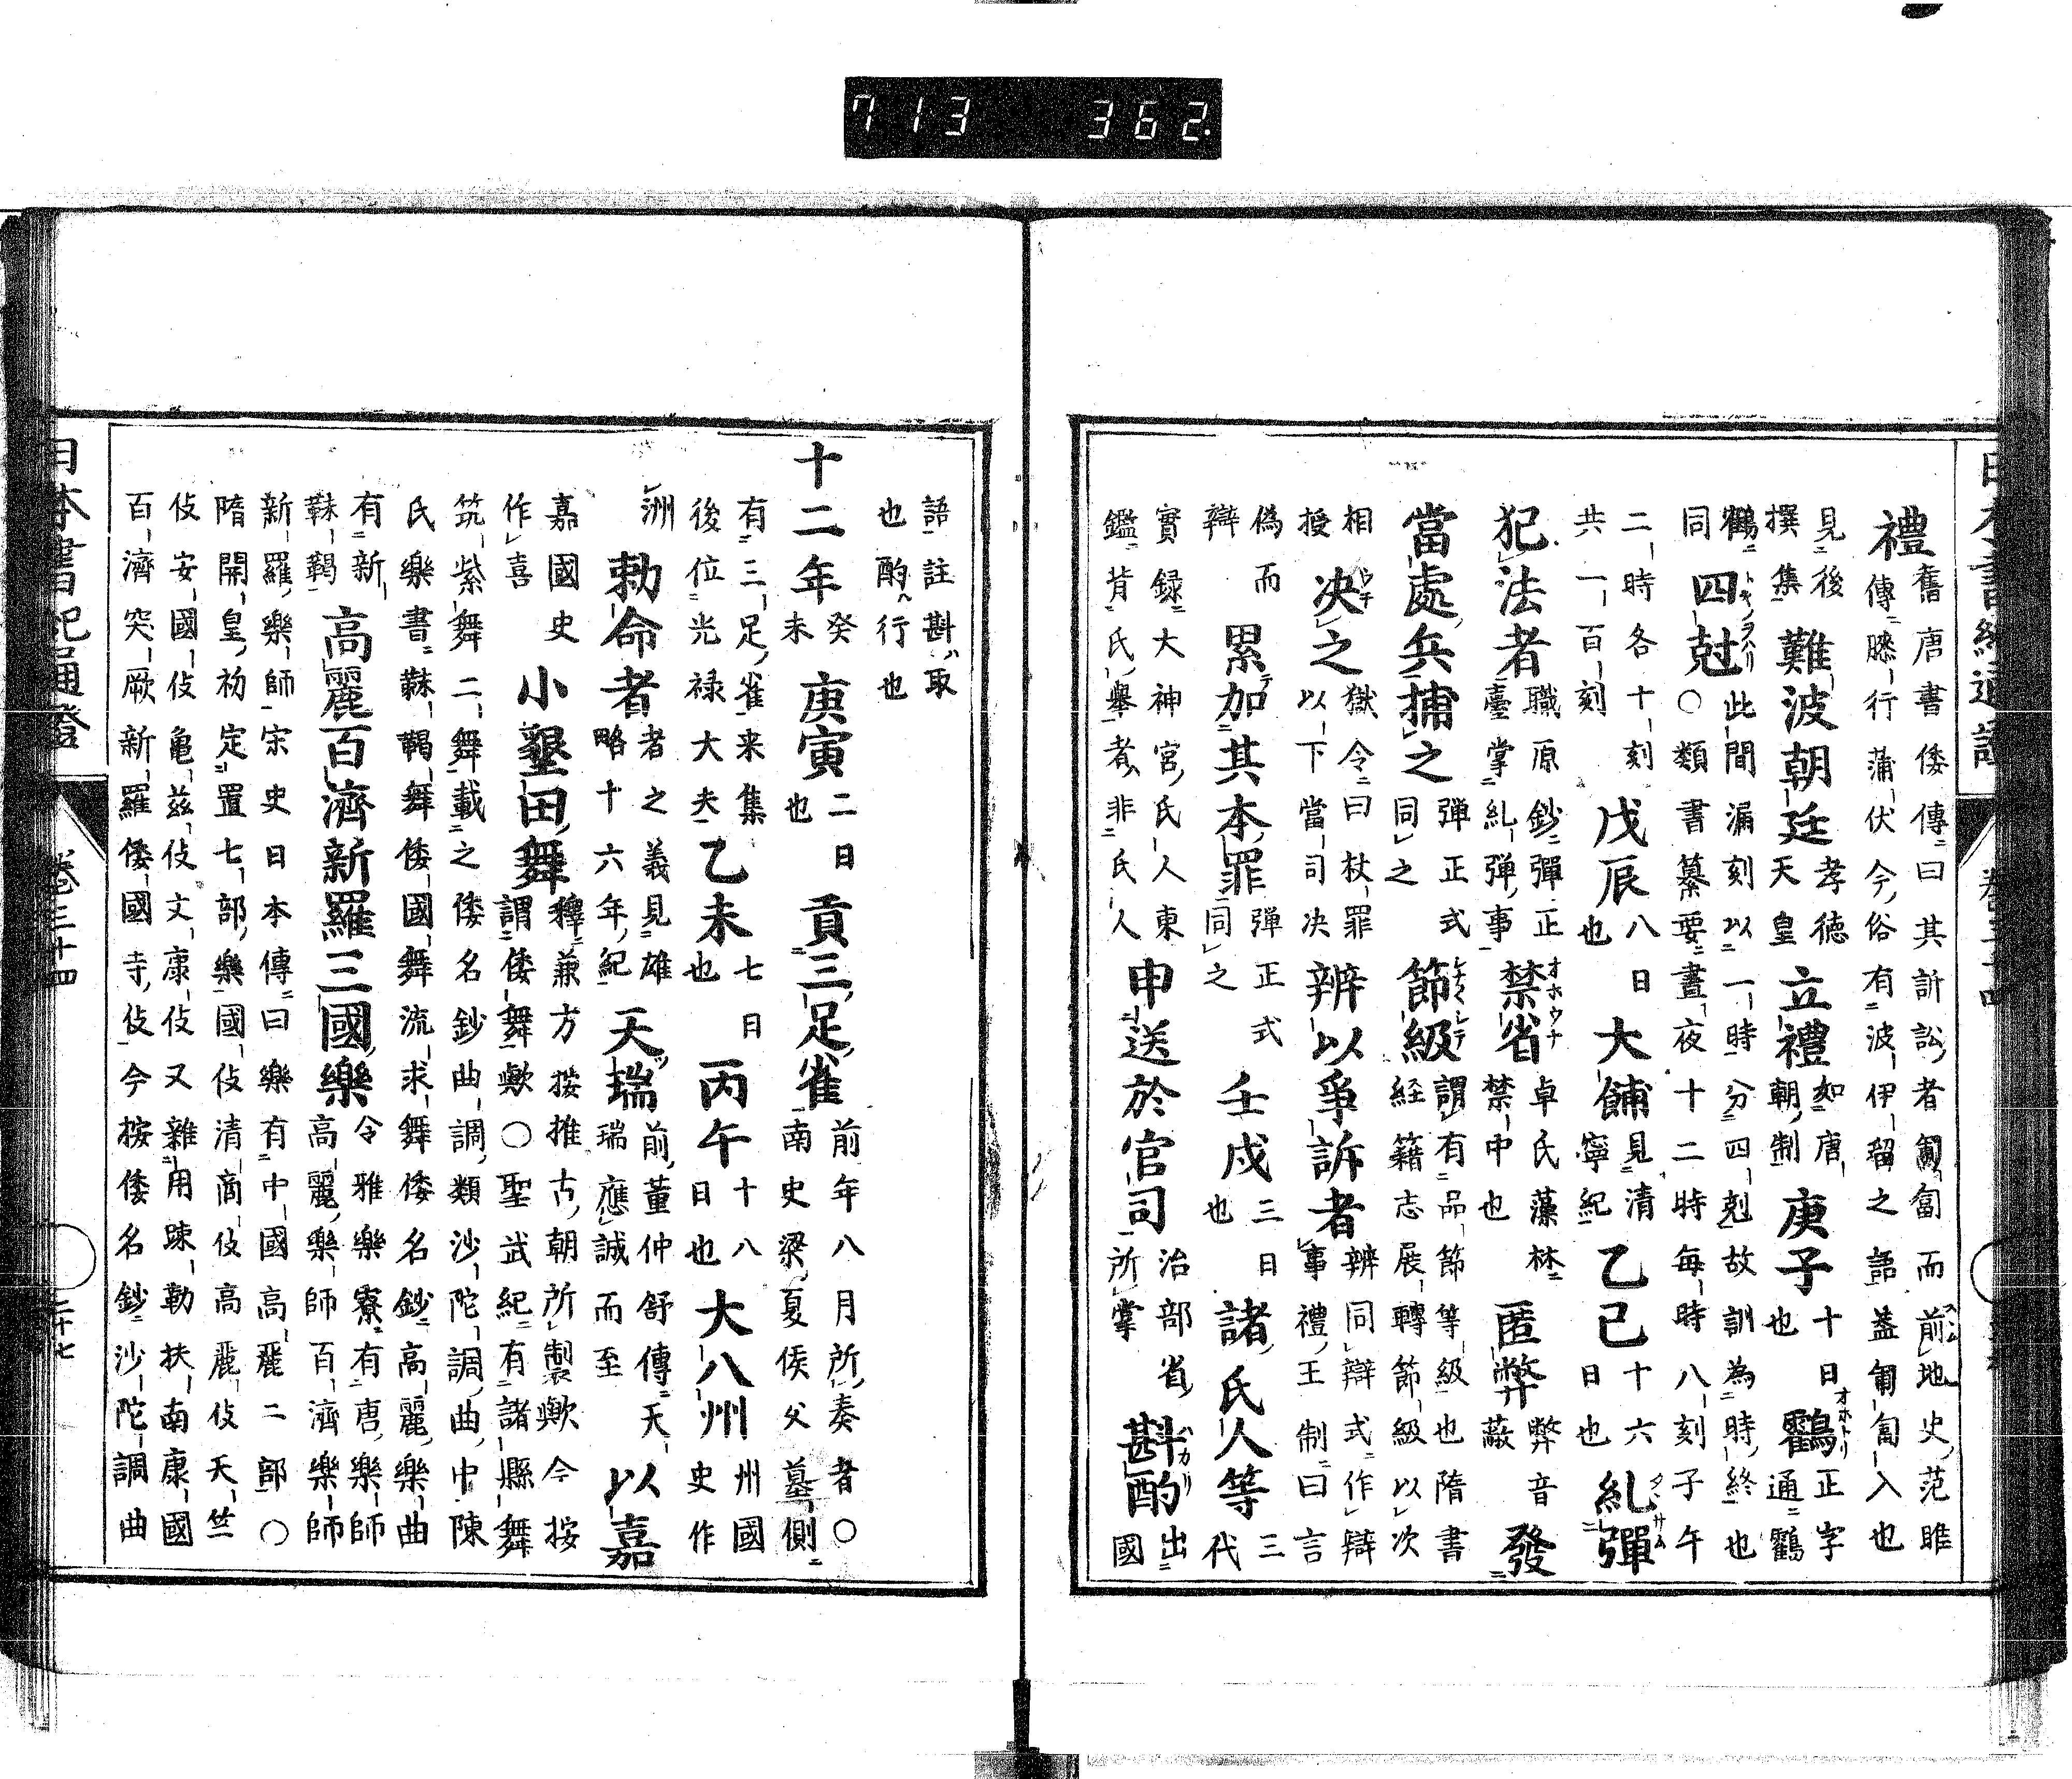 禮舊唐書倭傳曰其訴訟者匍匐而前地史范雎傳膝行蒲伏今俗有波伊留之語葢匍匐入也
見後撰集難波朝廷孝徳天皇立禮如唐朝制庚子十日也鸛正字通鸛
鸖同四尅此間漏刻以一時分四剋故訓為時終也○類書纂要晝夜十二時每時八刻子午
二時各十刻共一百刻戊辰八日也大餔見清寧紀乙巳十六日也糺彈
犯法者職原鈔彈正臺掌糺彈事禁省卓氏藻林禁中也匿弊弊音蔽發
當處兵捕之彈正式同之節級謂有品節等級也隋書経籍志展轉節級以次
相授决之獄令曰杖罪以下當司决辨以爭訴者辨同辯式作辯事禮王制曰言
偽而辯累加其本罪彈正式同之壬戌三日也諸氏人等三代
實録大神宮氏人東鑑背氏舉者非氏人申送於官司治部省所掌斟酌出國
語註斟取也酌行也
十二年癸未庚寅二日也貢三足雀前年八月所奏者○南史梁夏侯父墓側
有三足雀来集後位光禄大夫乙未七日也丙午十八日也大八州州國史作
洲勅命者者之義見雄略十六年紀天瑞前董仲舒傳天瑞應誠而至以嘉
嘉國史作喜小墾田舞釋兼方按推古朝所製歟今按謂倭舞歟○聖武紀有諸縣舞
筑紫舞二舞載之倭名鈔曲調類沙陀調曲中陳氏樂書靺鞨舞倭國舞流求舞倭名鈔高麗樂曲
有新靺鞨高麗百濟新羅三國樂令雅樂寮有唐樂師高麗樂師百濟樂師
新羅樂師宋史日本傳曰樂有中國高麗二部○隋開皇初定置七部樂國伎清商伎高麗伎天竺
伎安國伎亀茲伎文康伎又雜用踈勒扶南康國百濟突厥新羅倭國寺伎今按倭名鈔沙陀調曲
日本書紀通證 卷三十四 二十七
713 362